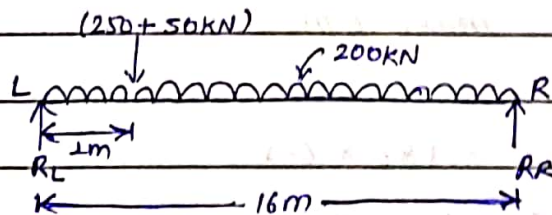 (250+50kN)
200KN
L R
1m
RL RR
16m